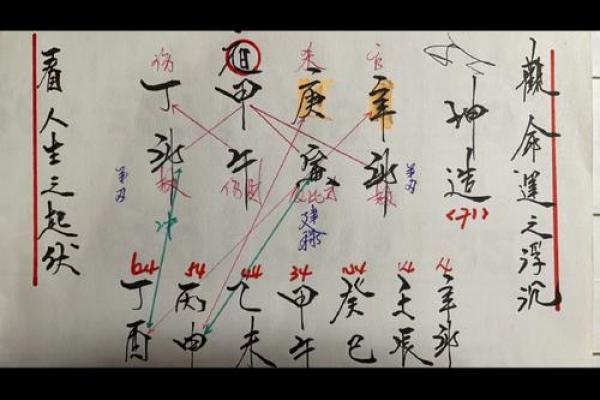 觀命運之浮沉
坤造
<71>
官
辛卯
羊刃
庚寅
建祿
甲午
傷
丁卯
羊刃
冲
4
辛卯
14
壬辰
24
癸巳
34
甲午
44
乙未
54
丙申
64
丁酉
看人生之起伏